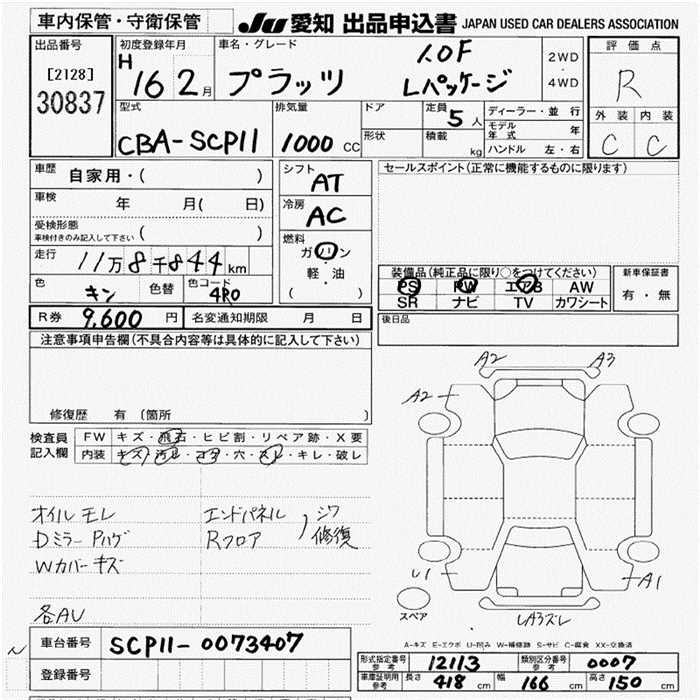 車内保管・守衛保管 JU 愛知 出品申込書 JAPAN USED CAR DEALERS ASSOCIATION
出品番号 初度登録年月 車名・グレード 評価点
[2128] H 16 2月 プラッツ 1.0F 2WD
・
30837 Lパッケージ 4WD R
型式 排気量 ドア 定員 5人 ディーラー・並行 外装 内装
CBA-SCP11 1000 CC 形状 積載 kg モデル年式 年 C C
ハンドル 左・右
車歴 自家用・( ) シフト AT セールスポイント(正常に機能するものに限ります)
車検 年 月( 日) 冷房 AC
受検形態
車検付きのみ記入して下さい
燃料
走行 11万8千844km ガソリン
・
軽・油
( )
装備品(純正品に限り○をつけてください) 新車保証書
色 キン 色替 色コード 4R0 PS PW エアB AW 有・無
SR ナビ TV カワシート
R券 9,600円 名変通知期限 月 日 後日品
注意事項申告欄(不具合内容等は具体的に記入して下さい)
修復歴 有 〔箇所 〕
検査員 FW キズ・飛石・ヒビ割・リペア跡・X要
記入欄 内装 キズ・汚レ・コゲ・穴・スレ・キレ・破レ
A2 A3
A2
オイルモレ エンドパネル シワ
Dミラー Pハゲ Rフロア 修復
Wカバーキズ
各AU
U1 A1
スペア LA3ズレ
A-キズ E-エクボ U-凹み W-補修跡 S-サビ C-腐食 XX-交換済
車台番号 SCP11-0073407
登録番号
形式指定番号 参考 12113 類別区分番号 参考 0007
車庫証明用 参考 長さ 418 cm 幅 166 cm 高さ 150 cm